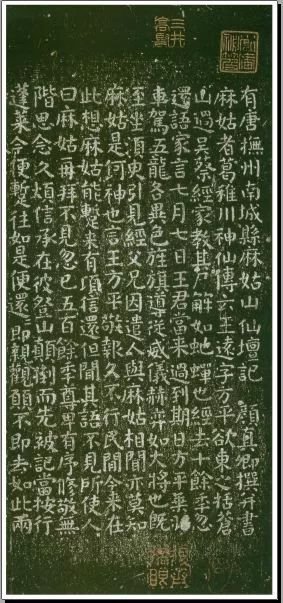 三井高堅
有唐撫州南城縣麻姑山仙壇記 顏真卿撰并書
麻姑者葛稚川神仙傳云王遠字方平欲東之括蒼
山過吳蔡經家教其尸解如虵蟬也經去十餘季忽
還語家言七月七日王君當来過到期日方平乘羽
車駕五龍各異色旌旗導從威儀赫弈如大將也既
至坐須臾引見經父兄因遣人與麻姑相聞亦莫知
麻姑是何神也言王方平敬報久不行民間今来在
此想麻姑能蹔来有頃信還但聞其語不見所使人
曰麻姑再拜不見忽已五百餘季尊卑有序修敬無
階思念久煩信承在彼登山顛倒而先被記當按行
蓬萊今便蹔往如是便還即親觀願不即去如此兩